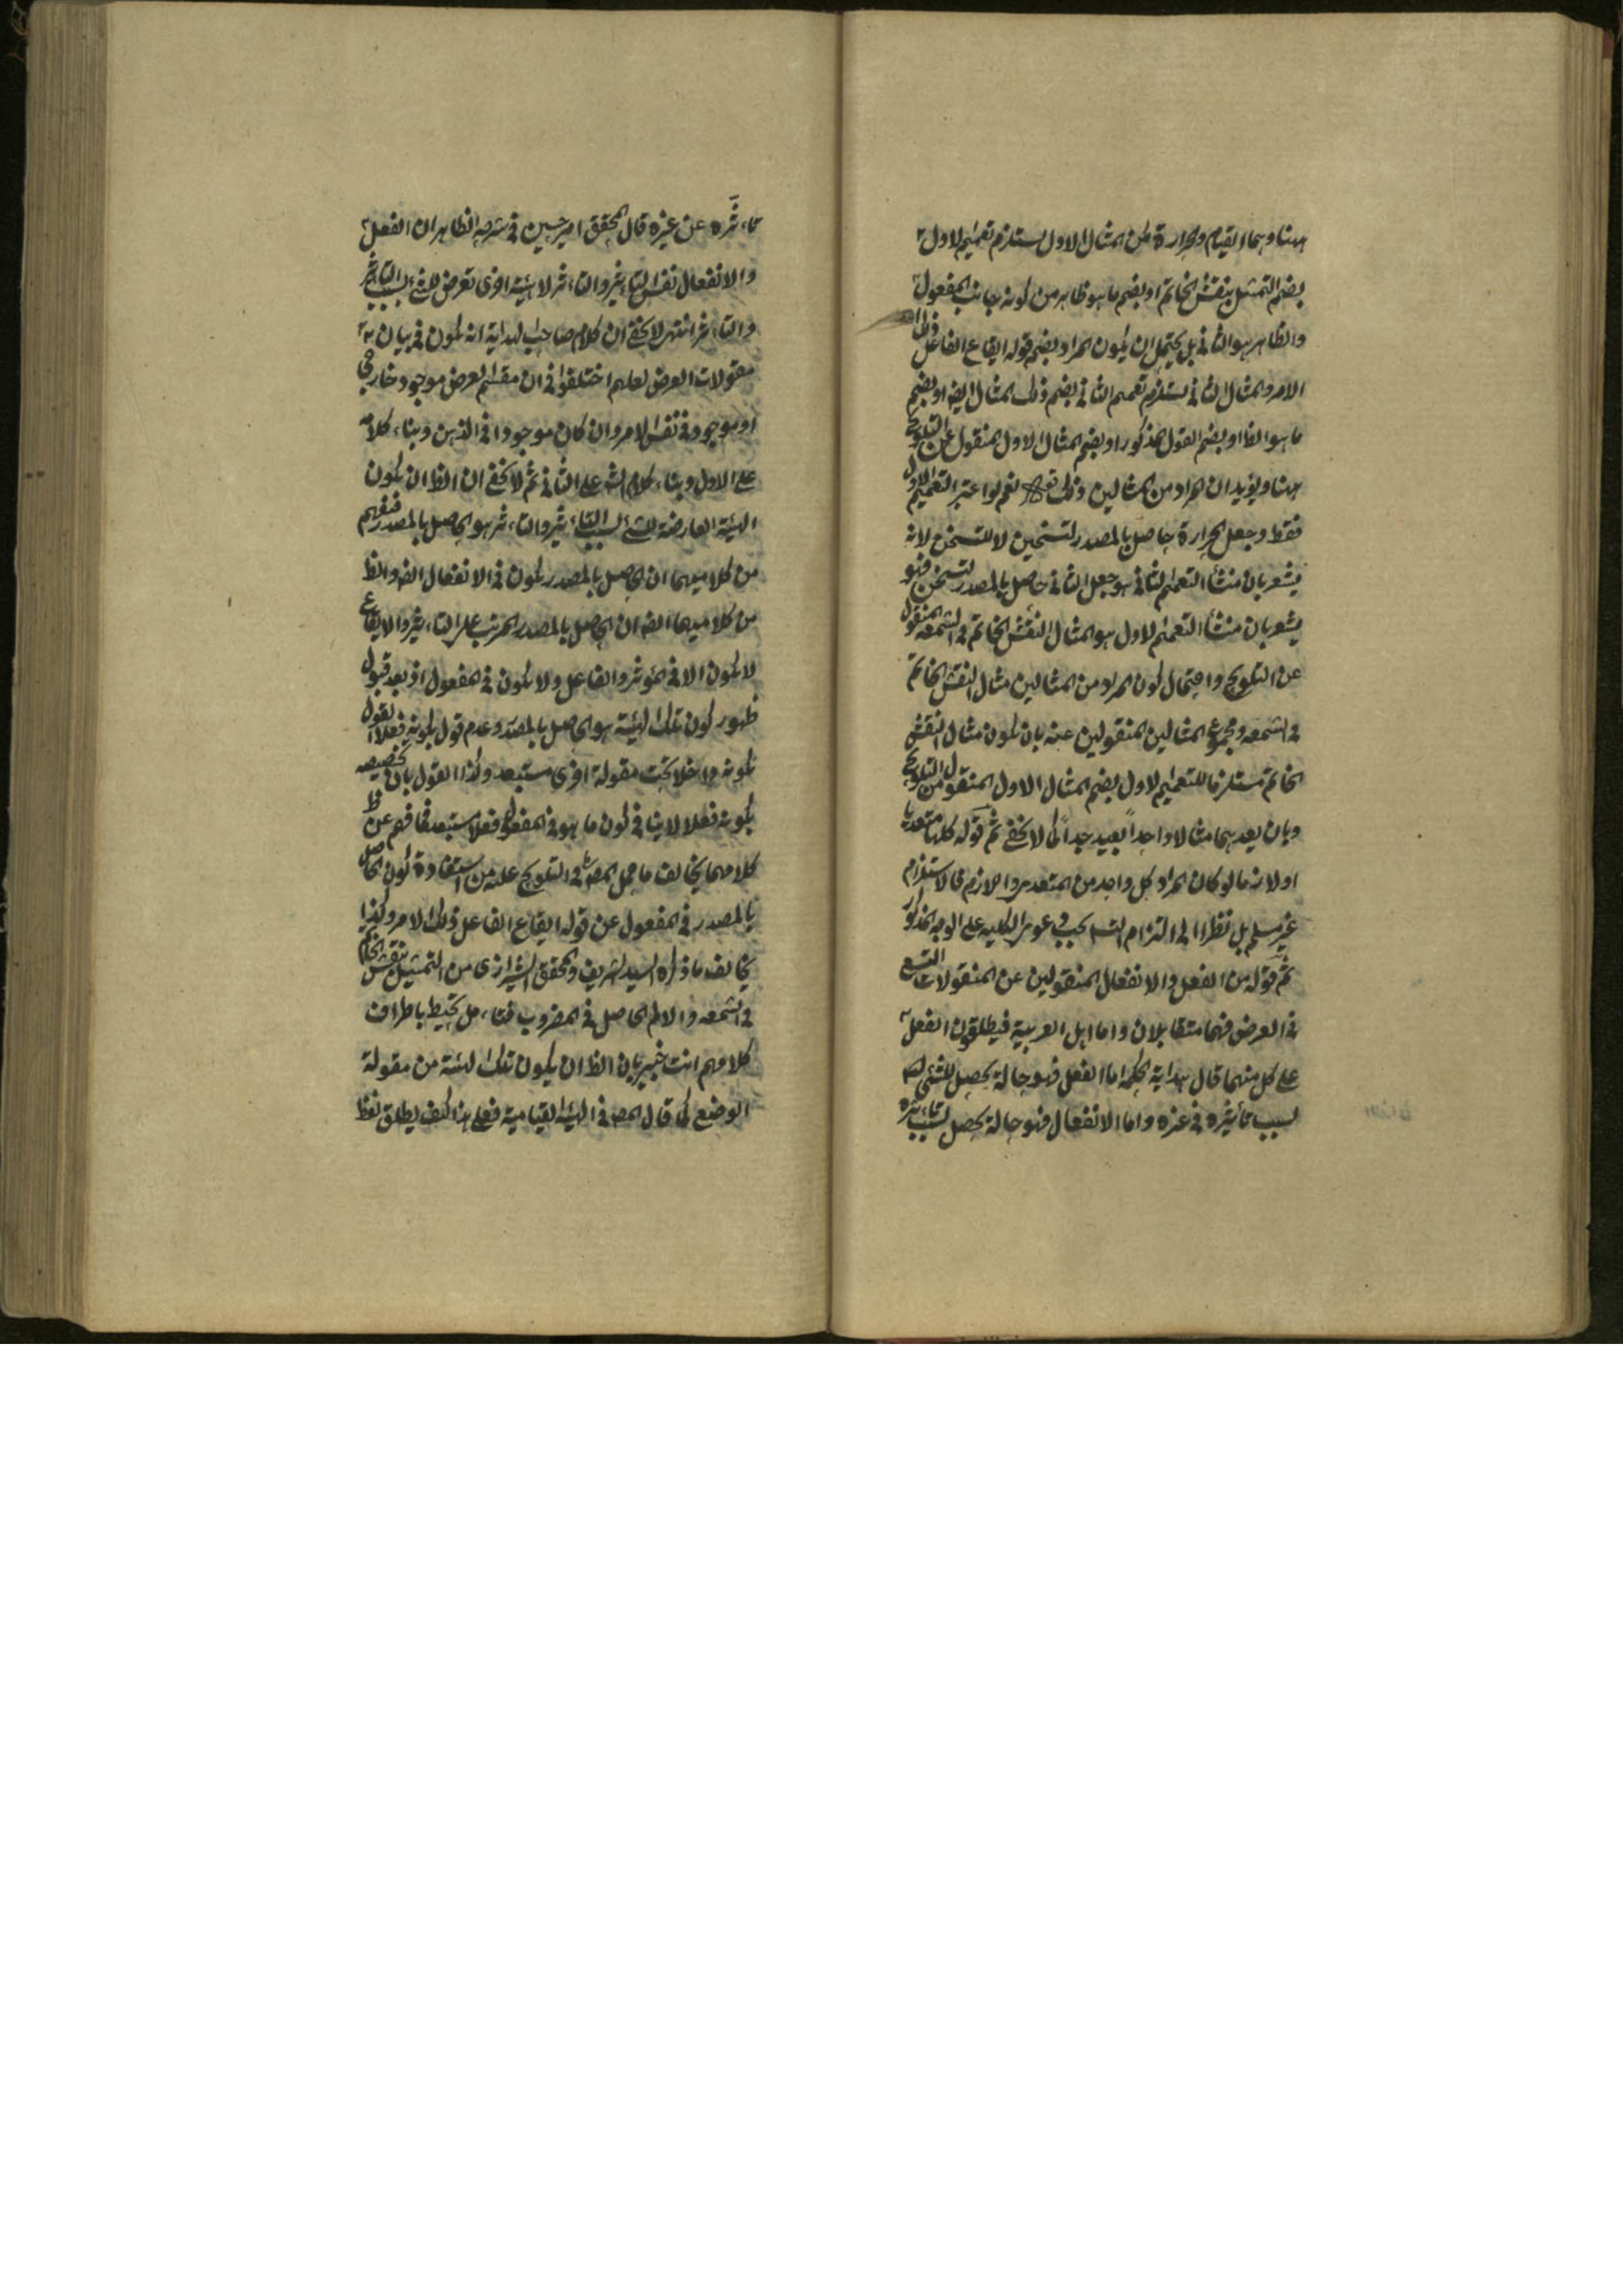 ههنا وهما القيام والحرارة لكن المثال الاول يستلزم تعميم الاول
بضم التمثيل بنقش الخاتم او بضم ما هو ظاهر من كونه بجانب المفعول
والظاهر هو الثاني بل يحتمل ان يكون المراد بضم قوله ايقاع الفاعل ذلك
الامر والمثال الثاني يستلزم تعميم الثاني بضم ذلك المثال ايضا او بضم
ما هو الظ او بضم القول المذكور او بضم المثال الاول المنقول عن التلويح
ههنا ويؤيد ان المراد من المثالين ذلك نعم لو اعتبر التعميم الاول
فقط وجعل الحرارة حاصل بالمصدر لتسخين لا للتسخن لانه
يشعر بان منشأ التعميم الثاني هو جعل الثاني حاصل بالمصدر لتسخن فهو
يشعر بان منشأ التعميم الاول هو المثال النقش الخاتم في الشمعه المنقول
عن التلويح واحتمال كون المراد من المثالين مثال النقش الخاتم
في الشمعه ومجموع المثالين المنقولين عنه بان يكون مثال النقش
الخاتم مستلزما للتعميم الاول بضم المثال الاول المنقول من التلويح
وبان يعد هما مثالا واحداً بعيد جداً كما لا يخفى ثم قوله كلها متعديا
اولا زما لو كان المراد كل واحد من المتعدي واللازم فالاستلزام
غير مسلم بل نظرا الى التزام التسا في عموم الكليه على الوجه المذكور
ثم قوله من الفعل والانفعال المنقولين عن المنقولات التسع
في العرض فهما متقابلان واما اهل العربية فيطلقون الفعل
على كل منهما قال هداية الحكمة اما الفعل فهو حالة يحصل للشئ
بسبب تأثيره في غيره واما الانفعال فهو حالة يحصل بسبب تاثره
تاءثره عن غيره قال المحقق امير حسين في شرحه الظاهر ان الفعل
والانفعال نفس التاءثير والتاءثر لا هيئة اخرى تعرض للشئ بسبب التاءثير
والتاءثر انتهى لا يخفى ان كلام صاحب الهداية انه يكون في بيان
مقولات العرض لعلهم اختلقوا في ان مقسم العرض موجود خارجي
او موجود في نفس الامر وان كان موجودا في الذهن وبناء كلامه
على الاول وبناء كلام الش على الثاني ثم لا يخفى ان الظ ان يكون
الهيئة العارضة للشئ بسبب التاءثير والتاءثر هو الحاصل بالمصدر فيفهم
من كلاميهما ان الحاصل بالمصدر يكون في الانفعال ايضا والظ
من كلاميهما ايضا ان الحاصل بالمصدر المرتب على التاءثير والايقاع
لا يكون الا في المؤثر والفاعل ولا يكون في المفعول اذ بعد قبول
ظهور كون تلك الهيئة هو الحاصل بالمصدر وعدم قول بكونه فعلا القول
بكونه داخلا تحت مقولة اخرى مستبعد وكذا القول بان تخصيصه
بكونه فعلا لا ينافي كون ما هو في المفعول فعلا مستبعد فما فهم عن ظ
كلامهما يخالف ما حمل المص في التلويح عليه من استفادة كون الحاصل
بالمصدر في المفعول عن قوله ايقاع الفاعل ذلك الامر وكذا
يخالف ما ذكره السيد الشريف والمحقق الشيرازى من التمثيل بنقش الخاتم
في الشمعه والالم الحاصل في المضروب فتاءمل يحيط باطراف
كلامهم انت خبير بان الظ ان يكون تلك الهيئة من مقولة
الوضع كما قال المص في الهيئة القيامية فعلى هذا كيف يطلق لفظ